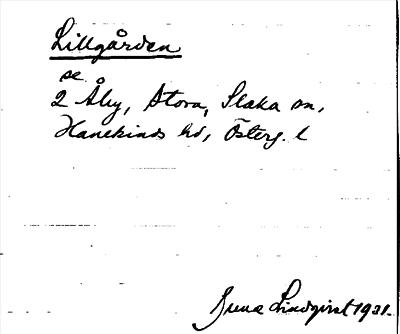 Lillgården
se
2 Åby, Stora, Slaka sn,
Hanekinds hd, Österg. l
Lindqvist 1931.